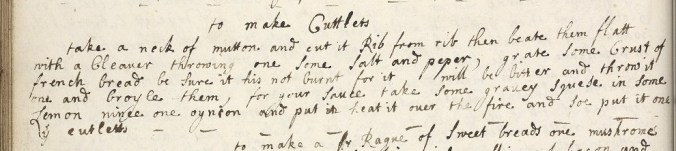 to make Cuttlets
take a neck of mutton and cut it Rib from rib then beate them flatt
with a Cleaver throwing one some Salt and peper, grate some Crust of
french bread be sure it his not burnt for it will be bitter and throw it
one and broyle them, for your sauce take some gravey squese in some
lemon mince one oynion and put in heat it over the fire and soe put it one
cutletts
to make a Rague of Sweet breads one mushrome
bacon and